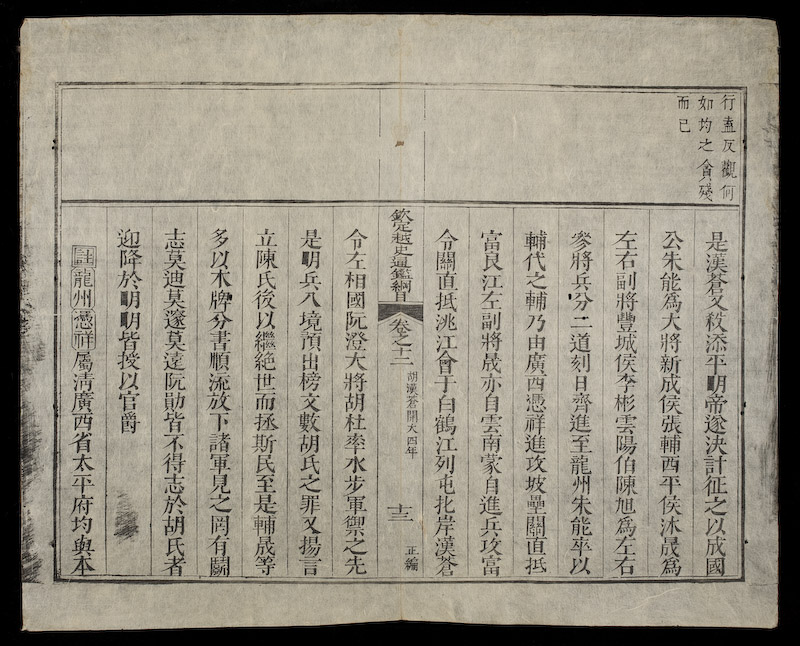 行盍反觀何
如均之貪殘
而已
是漢蒼又殺添平明帝遂決計征之以成國
公朱能爲大將新成侯張輔西平侯沐晟爲
左右副將豐城侯李彬雲陽伯陳旭爲左右
參將兵分二道刻日齊進至龍州朱能卒以
輔代之輔乃由廣西憑祥進攻坡壘關直抵
富良江左副將晟亦自雲南蒙自進兵攻富
令關直抵洮江會于白鶴江列屯北岸漢蒼
欽定越史通鑑綱目
卷之十二
胡漢蒼開大四年
十三
正編
令左相國阮澄大將胡杜率水步軍禦之先
是明兵入境預出榜文數胡氏之罪又揚言
立陳氏後以繼絕世而拯斯民至是輔晟等
多以木牌分書順流放下諸軍見之罔有鬬
志莫迪莫邃莫遠阮勛皆不得志於胡氏者
迎降於明明皆授以官爵
註龍州憑祥屬清廣西省太平府均與本